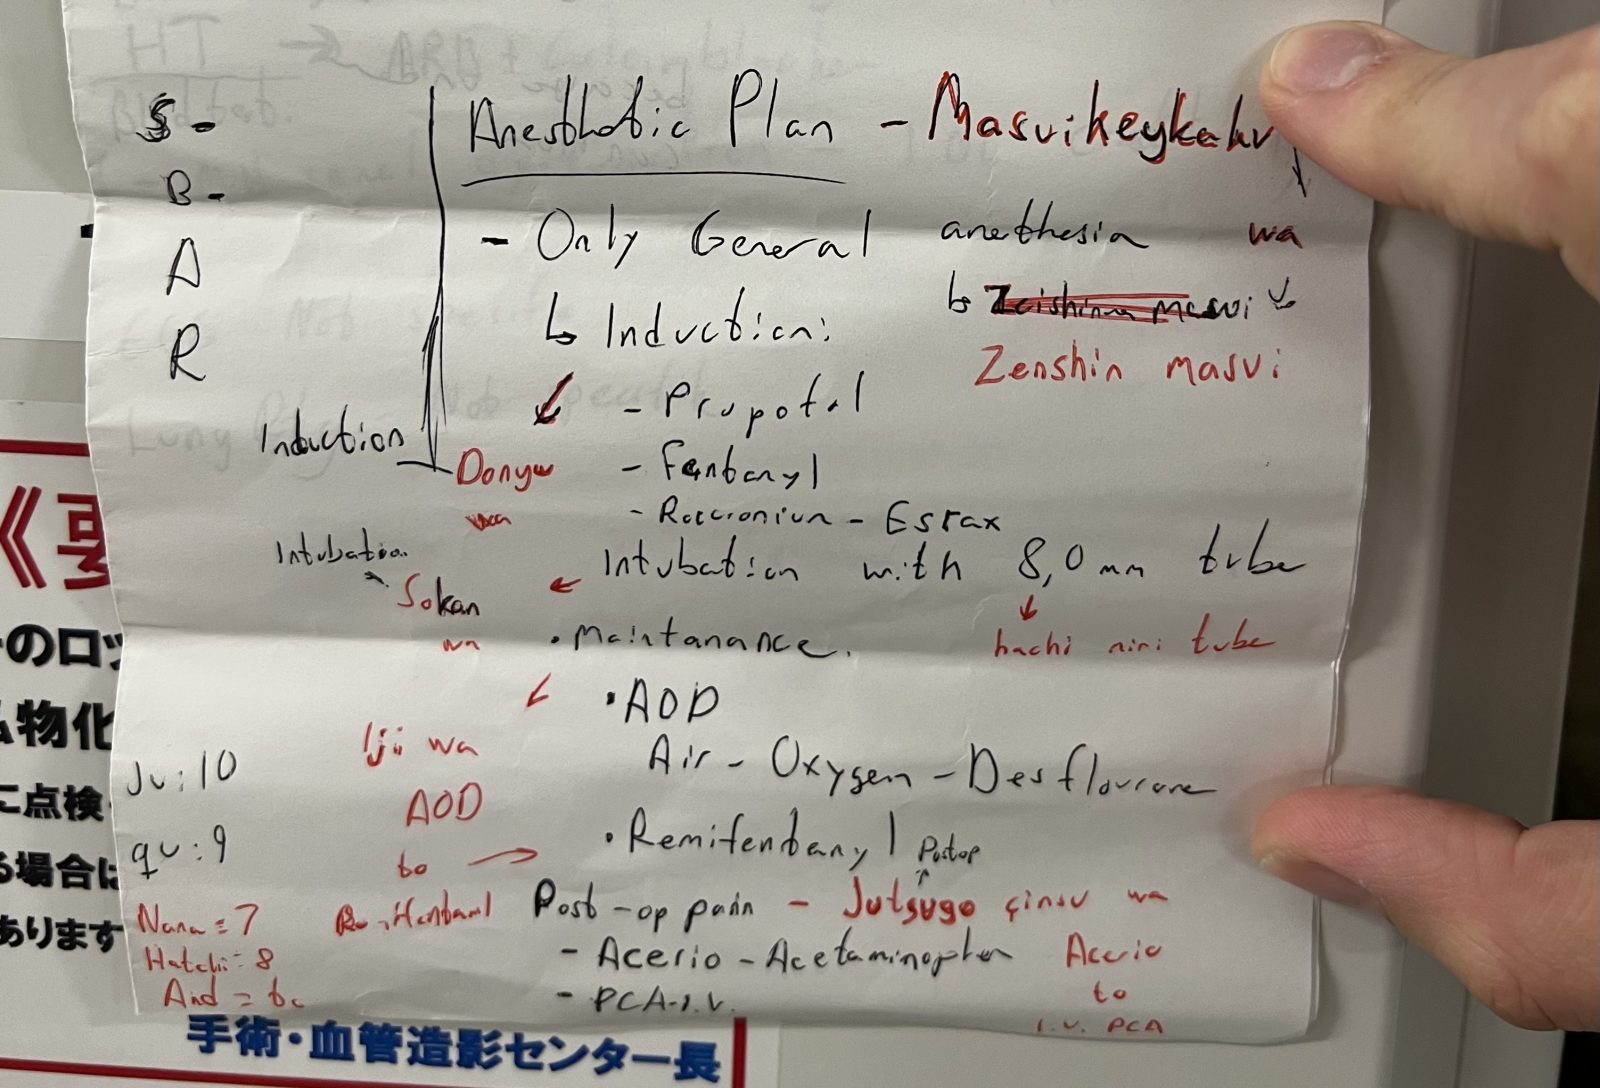 S-
B-
A
R
Anesthetic Plan - Masuikeykaku
- Only General anethesia wa
↳ Induction:
Zenshin masui
- Propofol
Induction
Donyu wa
- Fentanyl
- Rocuronium - Esrax
Intubation
Sokan wa
Intubation with 8,0 mm tube
hachi miri tube
• Maintanance.
• AOD
Iji wa
AOD
to
Air - Oxygen - Desflourane
• Remifentanyl
Ju: 10
qu: 9
Nana = 7
Hatchi = 8
And = to
Postop
Post-op pain - Jutsugo çinsu wa
- Acerio - Acetaminophen
Acerio
to
i.v. PCA
- PCA-i.v.
のロッ
物化
に点検
る場合は
あります
手術・血管造影センター長